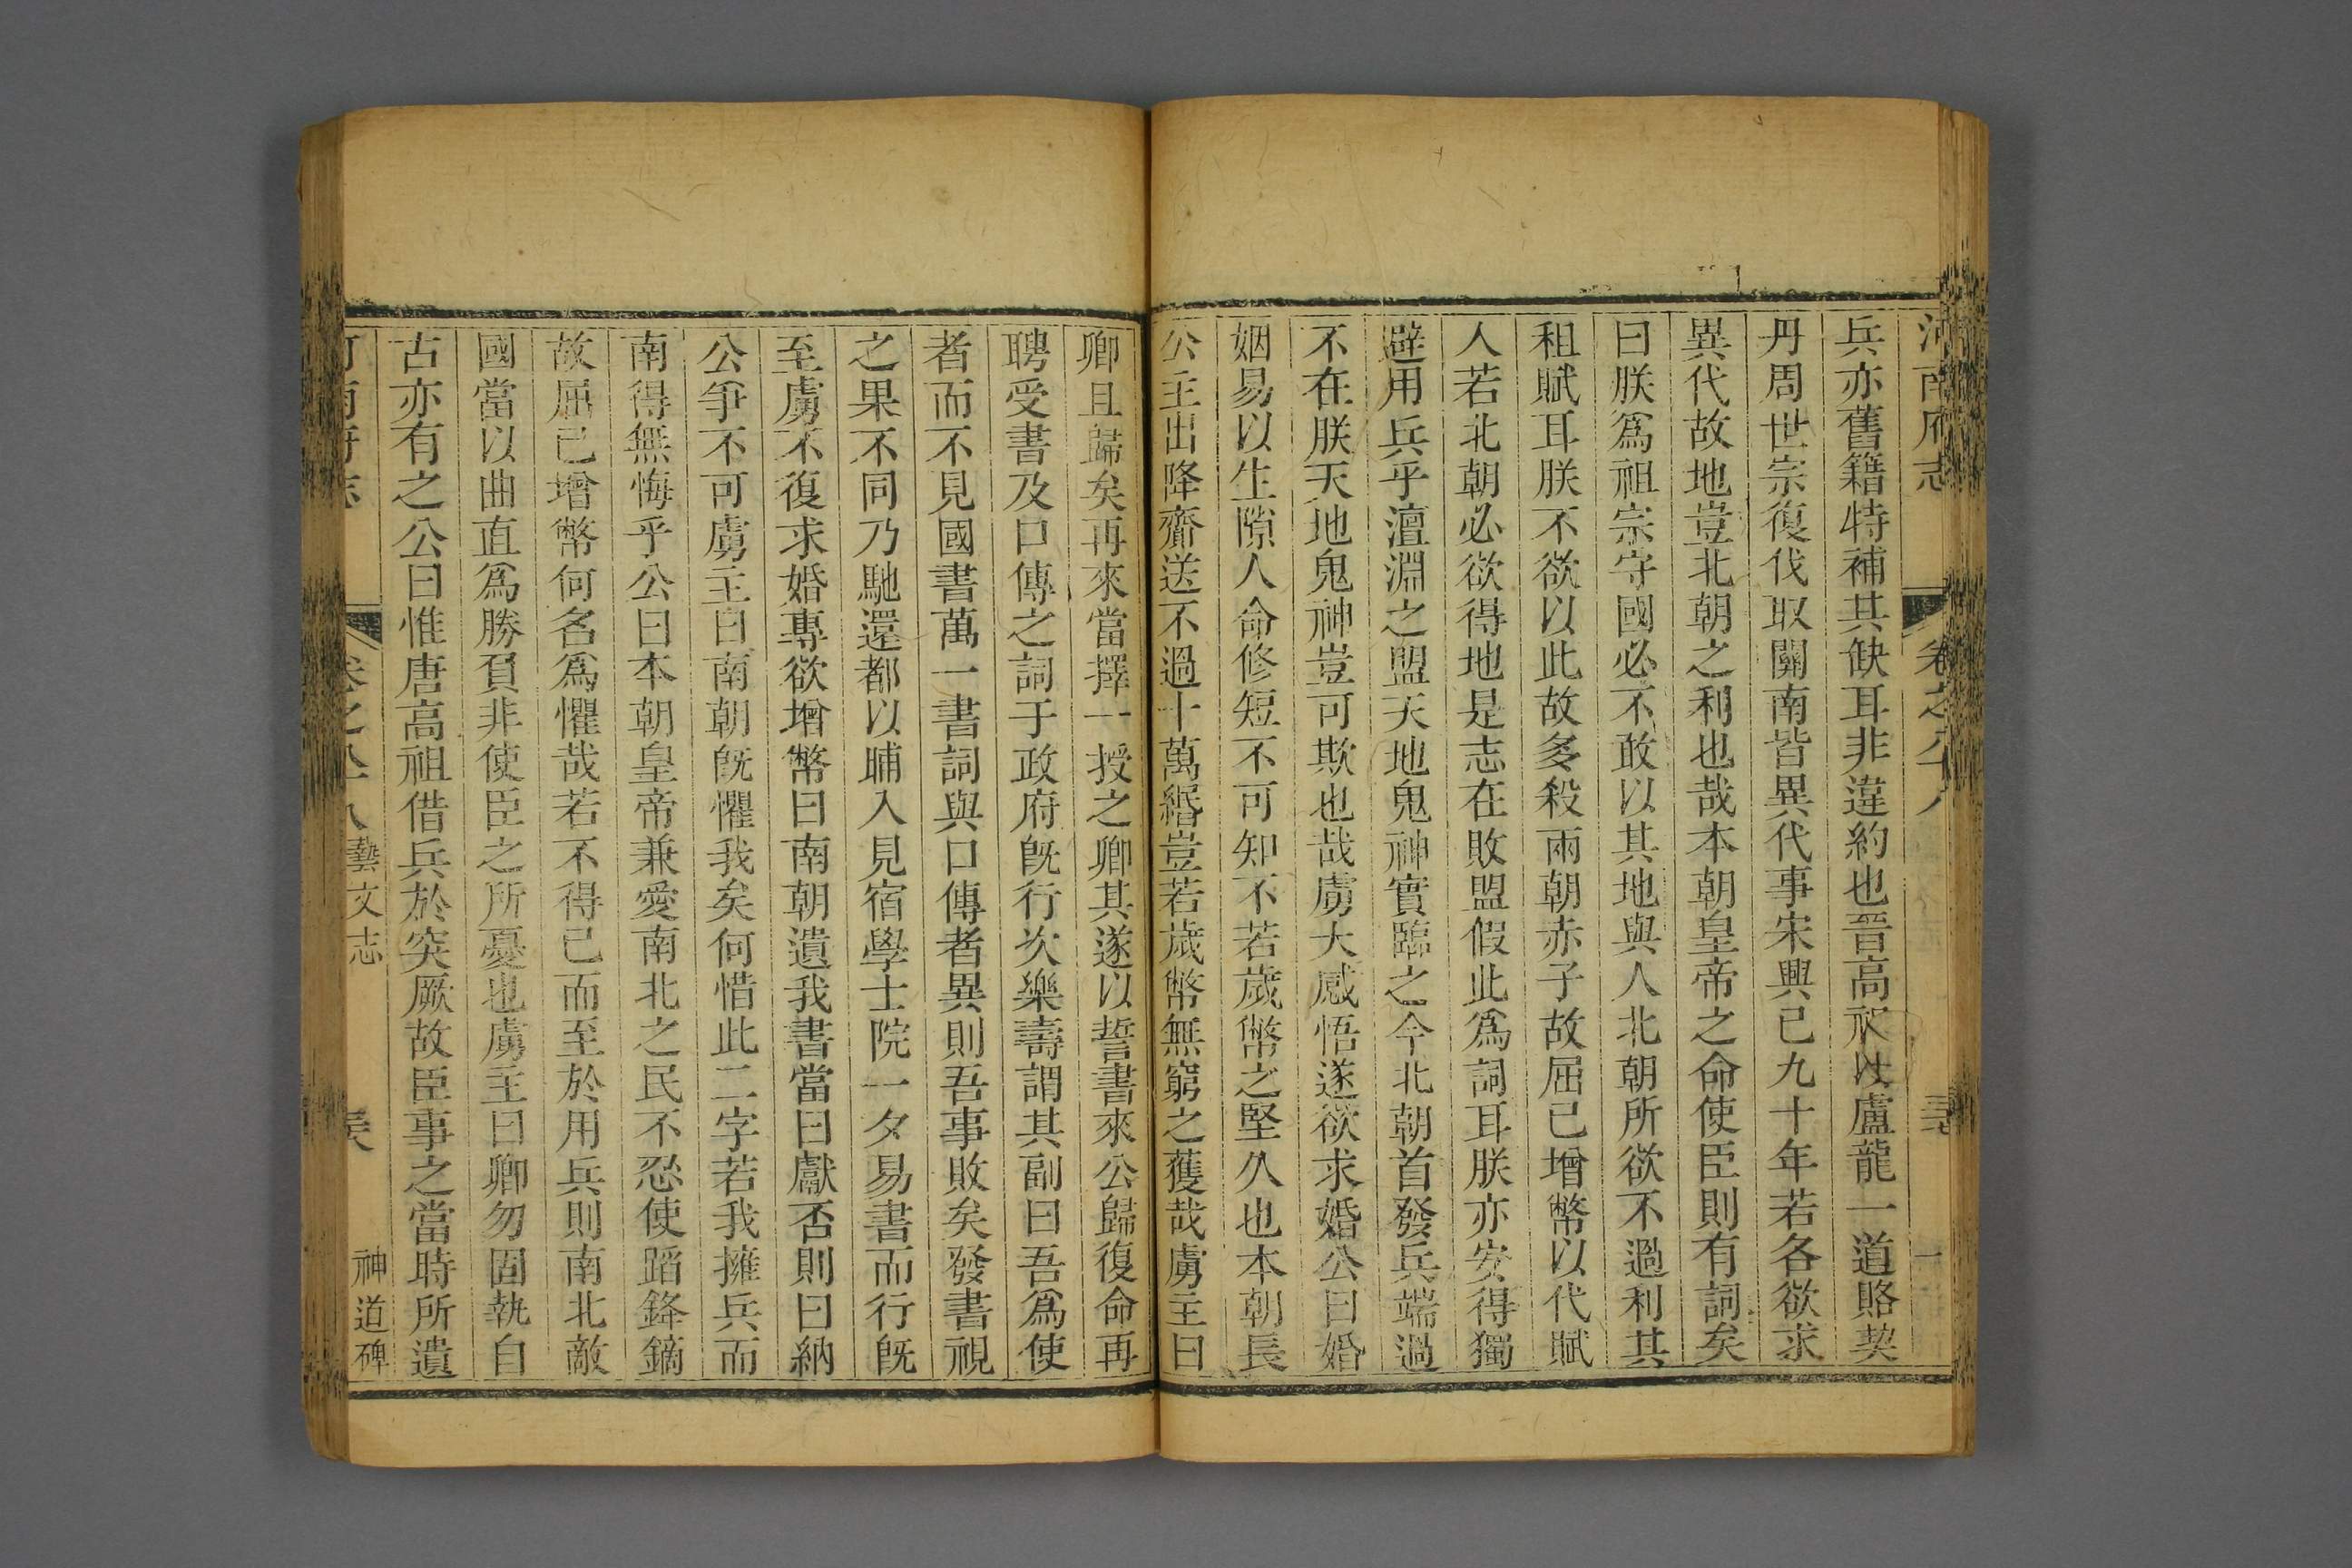 河南府志 卷之八十八
兵亦舊籍特補其缺耳非違約也晉高祖以盧龍一道賂契
丹周世宗復伐取關南皆異代事宋興已九十年若各欲求
異代故地豈北朝之利也哉本朝皇帝之命使臣則有詞矣
曰朕爲祖宗守國必不敢以其地與人北朝所欲不過利其
租賦耳朕不欲以此故多殺兩朝赤子故屈已增幣以代賦
人若北朝必欲得地是志在敗盟假此爲詞耳朕亦安得獨
避用兵乎澶淵之盟天地鬼神實臨之今北朝首發兵端過
不在朕天地鬼神豈可欺也哉虜大感悟遂欲求婚公曰婚
姻易以生隙人命修短不可知不若歲幣之堅久也本朝長
公主出降齎送不過十萬緡豈若歲幣無窮之獲哉虜主曰
卿且歸矣再來當擇一授之卿其遂以誓書來公歸復命再
聘受書及口傳之詞于政府旣行次樂壽謂其副曰吾爲使
者而不見國書萬一書詞與口傳者異則吾事敗矣發書視
之果不同乃馳還都以晡入見宿學士院一夕易書而行旣
至虜不復求婚專欲增幣曰南朝遺我書當曰獻否則曰納
公爭不可虜主曰南朝旣懼我矣何惜此二字若我擁兵而
南得無悔乎公曰本朝皇帝兼愛南北之民不忍使蹈鋒鏑
故屈已增幣何名爲懼哉若不得已而至於用兵則南北敵
國當以曲直爲勝負非使臣之所憂也虜主曰卿勿固執自
古亦有之公曰惟唐高祖借兵於突厥故臣事之當時所遺
河南府志 卷之八十八 藝文志 神道碑